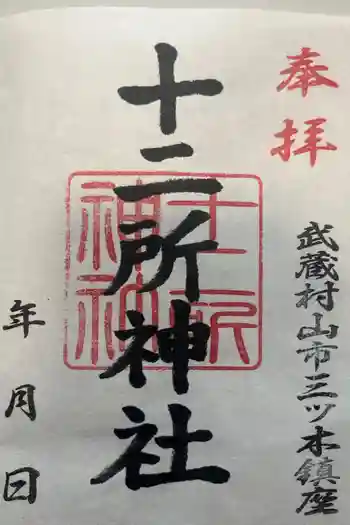 奉拝
武蔵村山市三ツ木鎮座
十二所神社
十二所
神社
年月日